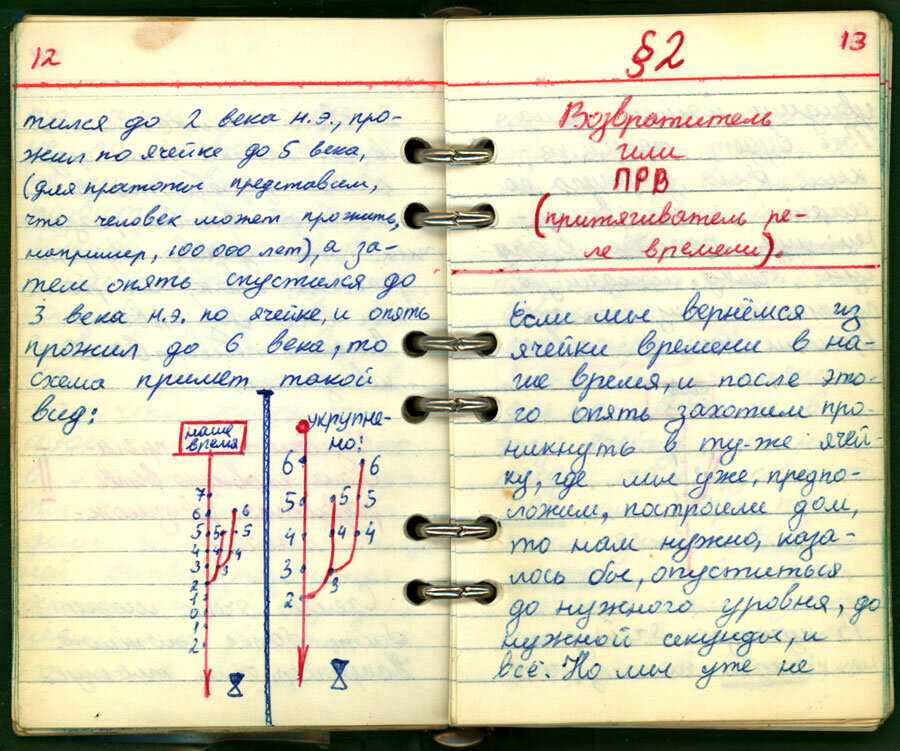 12
тился до 2 века н.э., про-
жил по ячейке до 5 века,
(для простоты представим,
что человек может прожить,
например, 100 000 лет), а за-
тем опять спустился до
3 века н.э. по ячейке, и опять
прожил до 6 века, то
схема примет такой
вид:
наше
время
7
6 6
5 5 5
4 4 4
3 3
2
1
0
1
2
укрупне-
но:
6 6
5 5 5
4 4 4
3 3
2
13
§2
Возвратитель
или
ПРВ
(притягиватель ре-
ле времени).
Если мы вернёмся из
ячейки времени в на-
ше время, и после это-
го опять захотим про-
никнуть в ту-же ячей-
ку, где мы уже, предпо-
ложим, построили дом,
то нам нужно, каза-
лось бы, опуститься
до нужного уровня, до
нужной секунды, и
всё. Но мы уже не